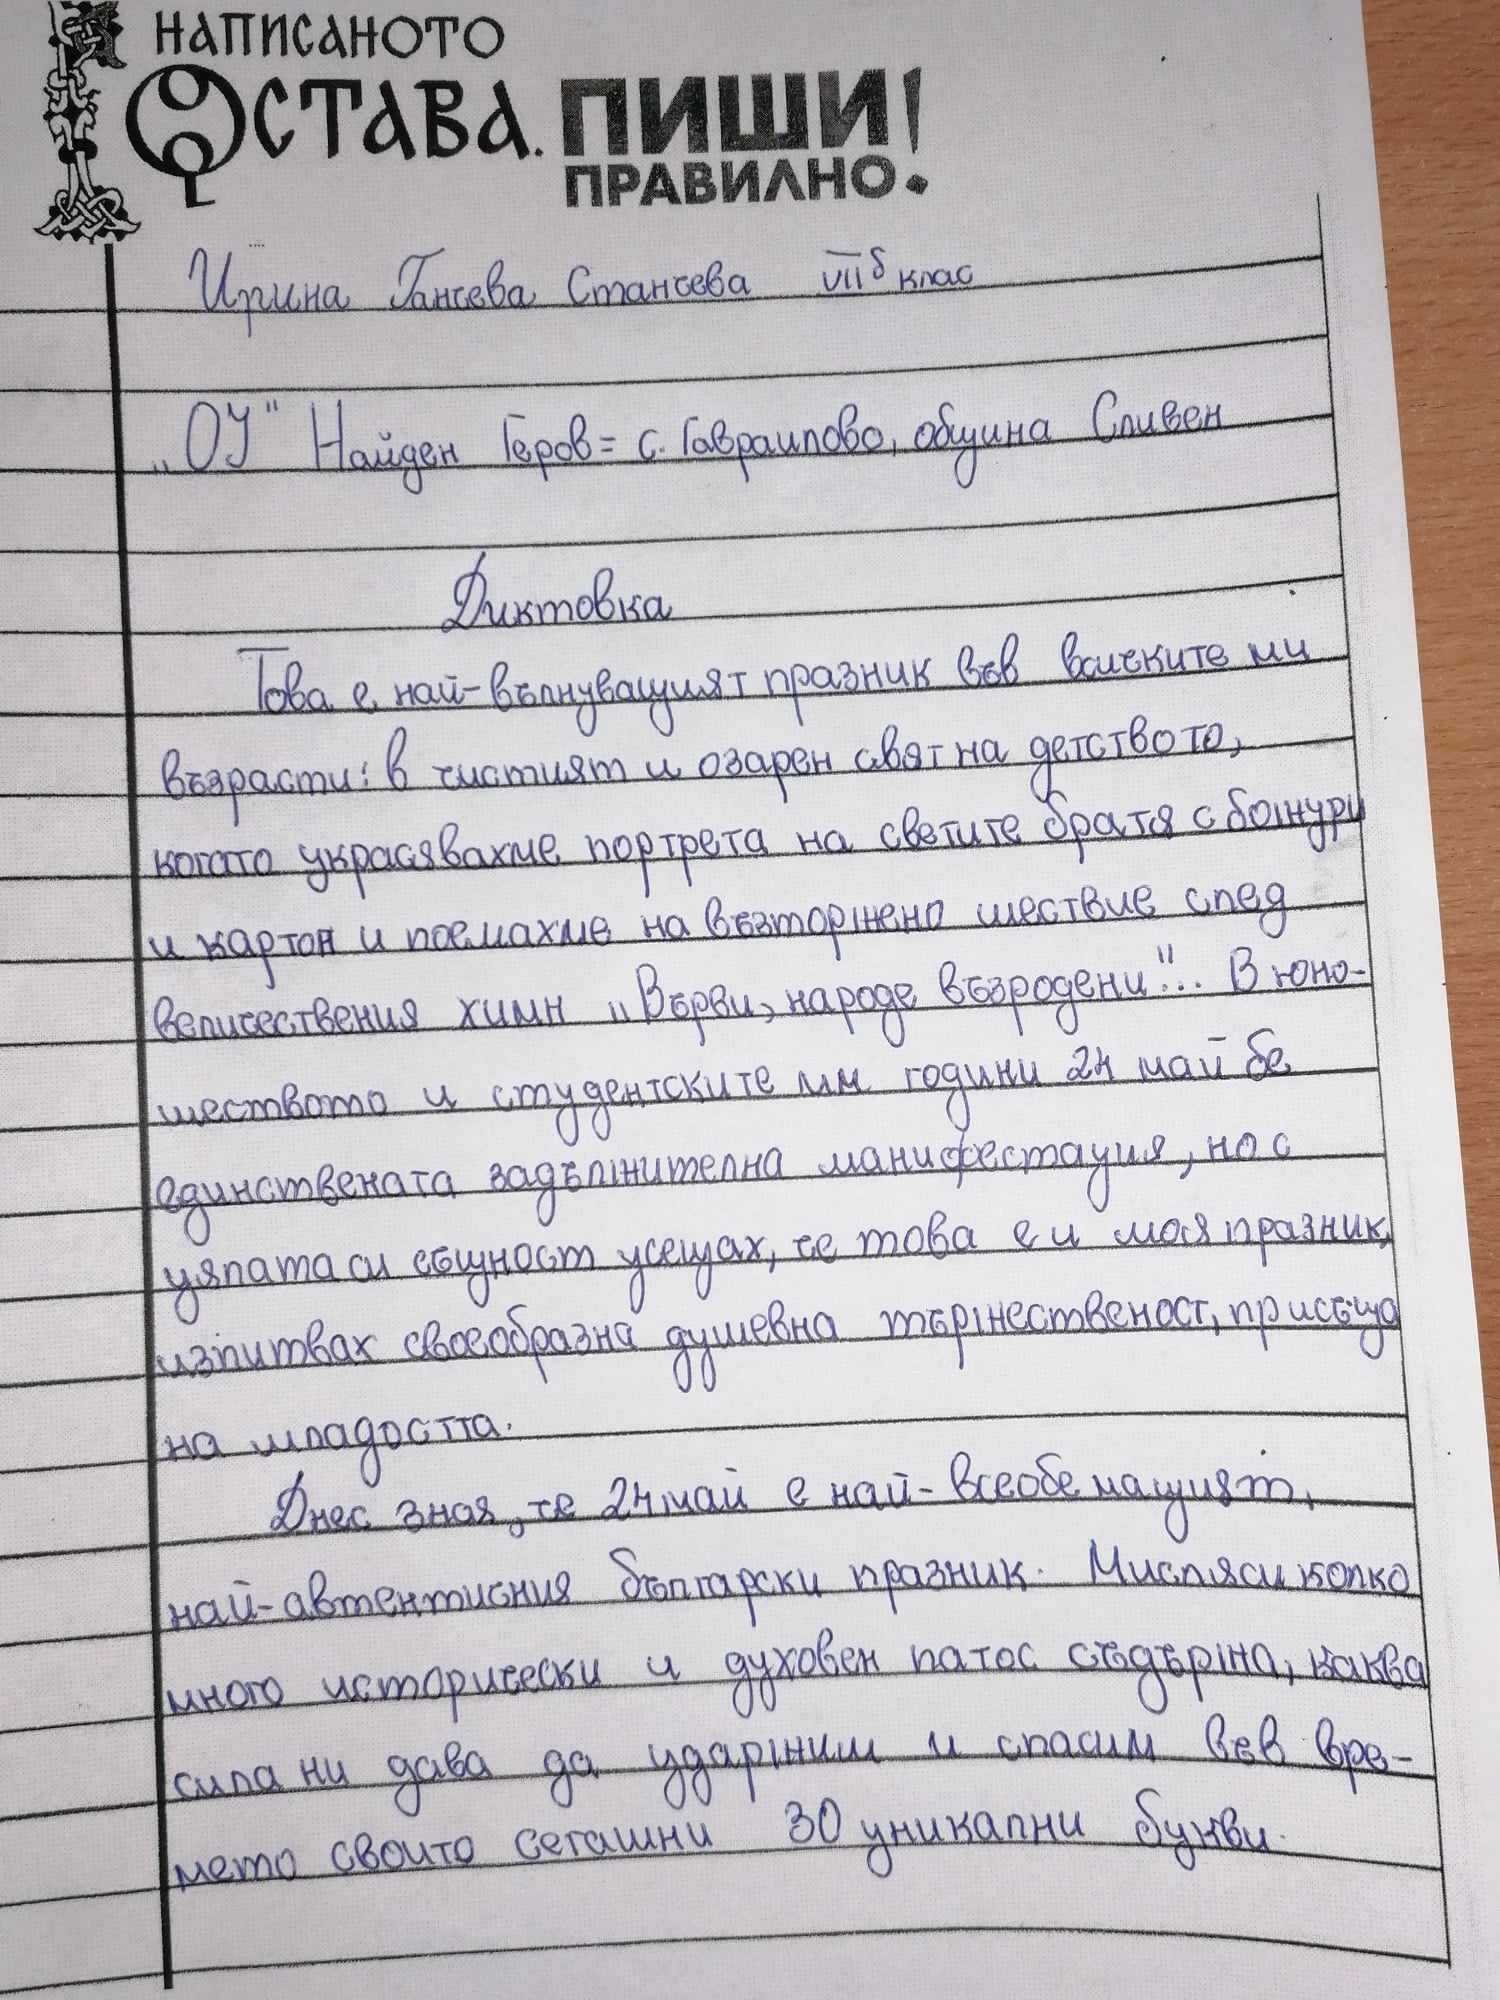 НАПИСАНОТО
ОСТАВА. ПИШИ!
ПРАВИЛНО.
Ирина Ганчева Станчева VII б клас
„ОУ" Найден Геров= с. Гавраилово, община Сливен
Диктовка
Това е най-вълнуващият празник във всичките ми
възрасти: в чистият и озарен свят на детството,
когато украсявахме портрета на светите братя с божури
и картон и поемахме на възторжено шествие след
величествения химн „Върви, народе възродени"... В юно-
шеството и студентските ми години 24 май бе
единствената задължителна манифестация, но с
цялата си същност усещах, че това е и моя празник,
изпитвах своеобразна душевна тържественост, присъща
на младостта.
Днес зная, че 24 май е най-всеобемащият,
най-автентисния български празник. Мисля си колко
много исторически и духовен патос съдържа, каква
сила ни дава да удържим и спасим във вре-
мето своито сегашни 30 уникални букви.